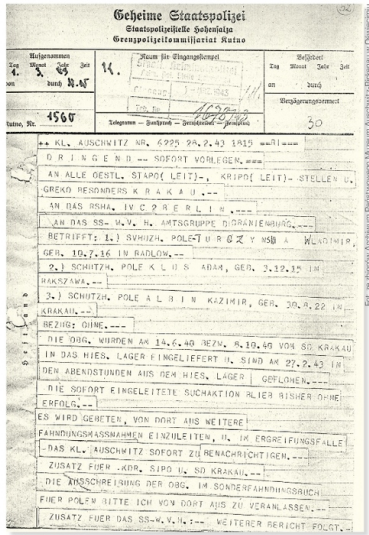 Geheime Staatspolizei
Staatspolizeistelle Hohensalza
Grenzpolizeikommissariat Kutno
Aufgenommen
Tag Monat Jahr Zeit
1. 3. 43
durch
Raum für Eingangsstempel
14.
Befördert
Tag Monat Jahr Zeit
an durch
Verzögerungsvermerk
Kutno, Nr. 1560
Telegramm — Funkspruch — Fernschreiben — Fernspruch
30
++ KL. AUSCHWITZ NR. 6225 28.2.43 1815 ==
D R I N G E N D -- SOFORT VORLEGEN.==--
AN ALLE OESTL. STAPO( LEIT)-, KRIPO( LEIT)-STELLEN U.
GREKO BESONDERS K R A K A U .--
AN DAS RSHA, IV C 2 B E R L I N .---
AN DAS SS- W. V. H. AMTSGRUPPE D ORANIENBURG.--
BETRIFFT: 1.) POLE WLADIMIR,
GEB. 10.7.16 IN RADLOW.--
2.) SCHUTZH. POLE K L O S ADAM, GEB. 3.12.15 IN
WARSZAWA.--
3.) SCHUTZH. POLE A L B I N KAZIMIR, GEB. 30.8.22 IN
KRAKAU.--
BEZUG: OHNE.---
DIE OBG. WURDEN AM 14.6.40 BEZW. 8.10.40 VON SD KRAKAU
IN DAS HIES. LAGER EINGELIEFERT U. SIND AM 27.2.43 IN
DEN ABENDSTUNDEN AUS DEM HIES. LAGER GEFLOHEN.--
DIE SOFORT EINGELEITETE SUCHAKTION BLIEB BISHER OHNE
ERFOLG.--
ES WIRD GEBETEN, VON DORT AUS WEITERE
FAHNDUNGSMASSNAHMEN EINZULEITEN, U. IM ERGREIFUNGSFALLE
DAS KL. AUSCHWITZ SOFORT ZU BENACHRICHTIGEN.--
ZUSATZ FUER .KDR. SIPO U. SD KRAKAU.--
DIE AUSSCHREIBUNG DER OBG. IM SONDERFAHNDUNGSBUCH
FUER POLEN BITTE ICH VON DORT AUS ZU VERANLASSEN.--
ZUSATZ FUER DAS SS-W.V.H.:-- WEITERER BERICHT FOLGT.-